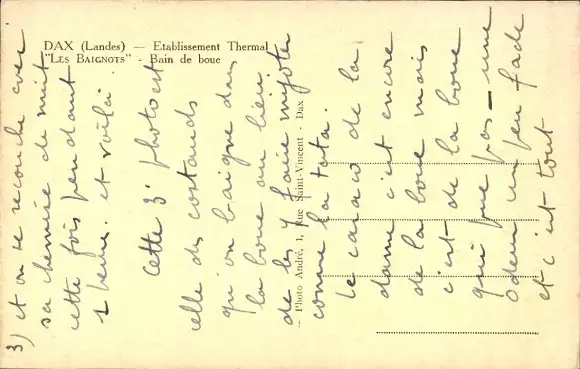 DAX (Landes) — Etablissement Thermal
"LES BAIGNOTS" - Bain de boue
— Photo André, 1, Rue Saint-Vincent - Dax
3) et on se recouche avec
sa chemise de nuit
cette fois pendant
1 heure. et voilà.
Cette 3e photo est
celle des costauds
qu'on baigne dans
la boue au lieu
de les y faire mijoter
comme la tata.
Le caraco de la
dame c'est encore
de la boue mais
c'est de la boue
qui pue pas — une
odeur un peu fade
et c'est tout